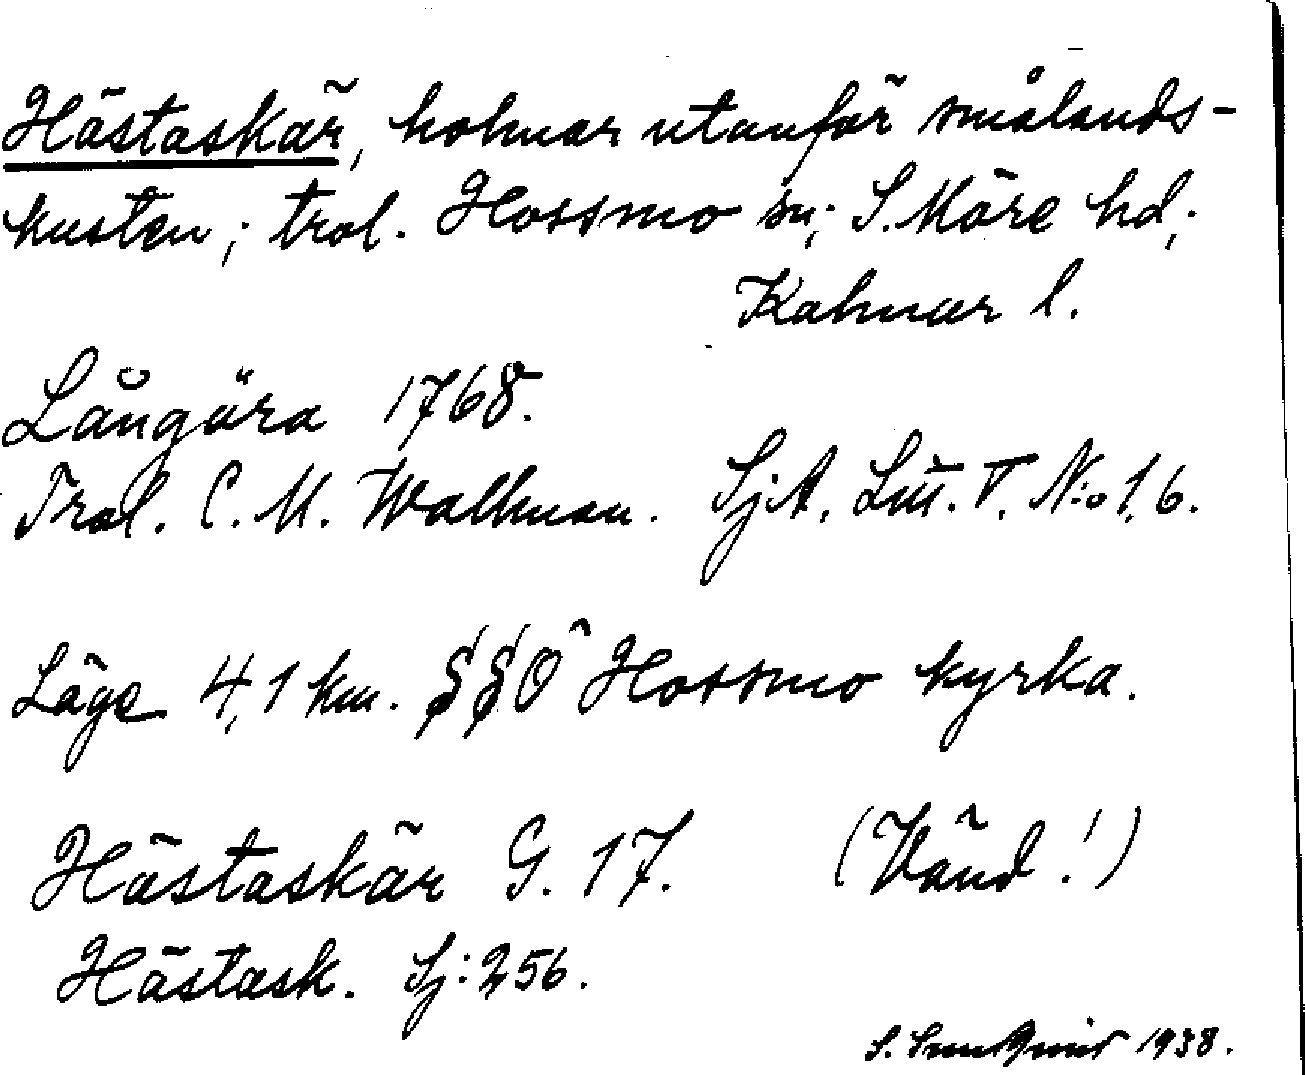 Hästaskär, holmar utanför smålands-
kusten; trol. Hossmo sn; S. Möre hd;
Kalmar l.
Långöra 1768.
Trol. C. M. Wallman. SjA. Litt. V. N:o 1, 6.
Läge 4,1 km. SSO Hossmo kyrka.
Hästaskär G. 17. (Vänd!)
Hästask. Sj: 256.
S. 1938.